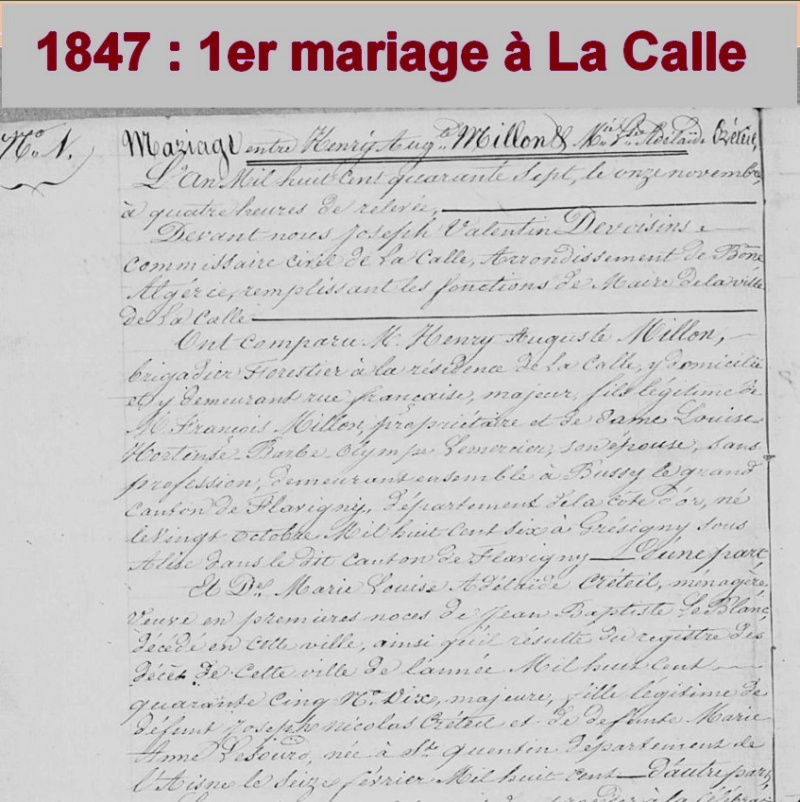 1847 : 1er mariage à La Calle
No 1.
Mariage entre Henry Augte Millon & Mie Lse Adelaïde Créteil,
L'An Mil huit Cent quarante Sept, le onze novembre,
à quatre heures de relevée,
Devant nous Joseph Valentin Devoisins,
Commissaire civil de La Calle, Arrondissement de Bône
Algérie, remplissant les fonctions de Maire de la ville
de La Calle
Ont comparu M. Henry Auguste Millon,
brigadier Forestier à la résidence de La Calle, y domicilié
et y demeurant rue française, majeur, fils légitime de
M. François Millon, propriétaire et de Dame Louise
Hortense Barbe Olympe Lemercier, son épouse, sans
profession, demeurant ensemble à Bussy le grand
canton de Flavigny, département de la Côte d'or, né
le vingt octobre Mil huit Cent six à Grésigny sous
Alise dans le dit canton de Flavigny D'une part
Et De. Marie Louise Adélaïde Créteil, ménagère,
Veuve en premières noces de Jean Baptiste Le Blanc
décédé en cette ville, ainsi qu'il résulte du registre des
décès de Cette ville de l'année Mil huit Cent
quarante cinq No. Dix, majeure, fille légitime de
défunt Joseph Nicolas Créteil et de defunte Marie
Anne Lesourd, née à St. quentin département de
l'Aisne le Seize février Mil huit Cent D'autre part,